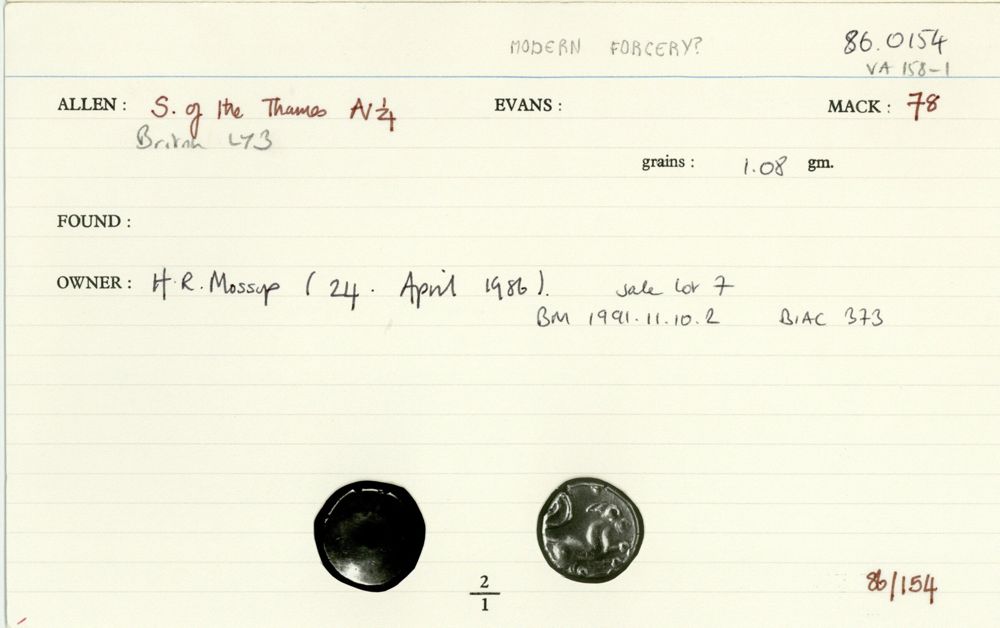 MODERN FORGERY? 86.0154
VA 158-1
ALLEN : S. of the Thames AV ¼ EVANS : MACK : 78
British LY3
grains : 1.08 gm.
FOUND :
OWNER : H.R. Mossop (24. April 1986). sale lot 7
BM 1991.11.10.2 BIAC 373
2
1
86/154